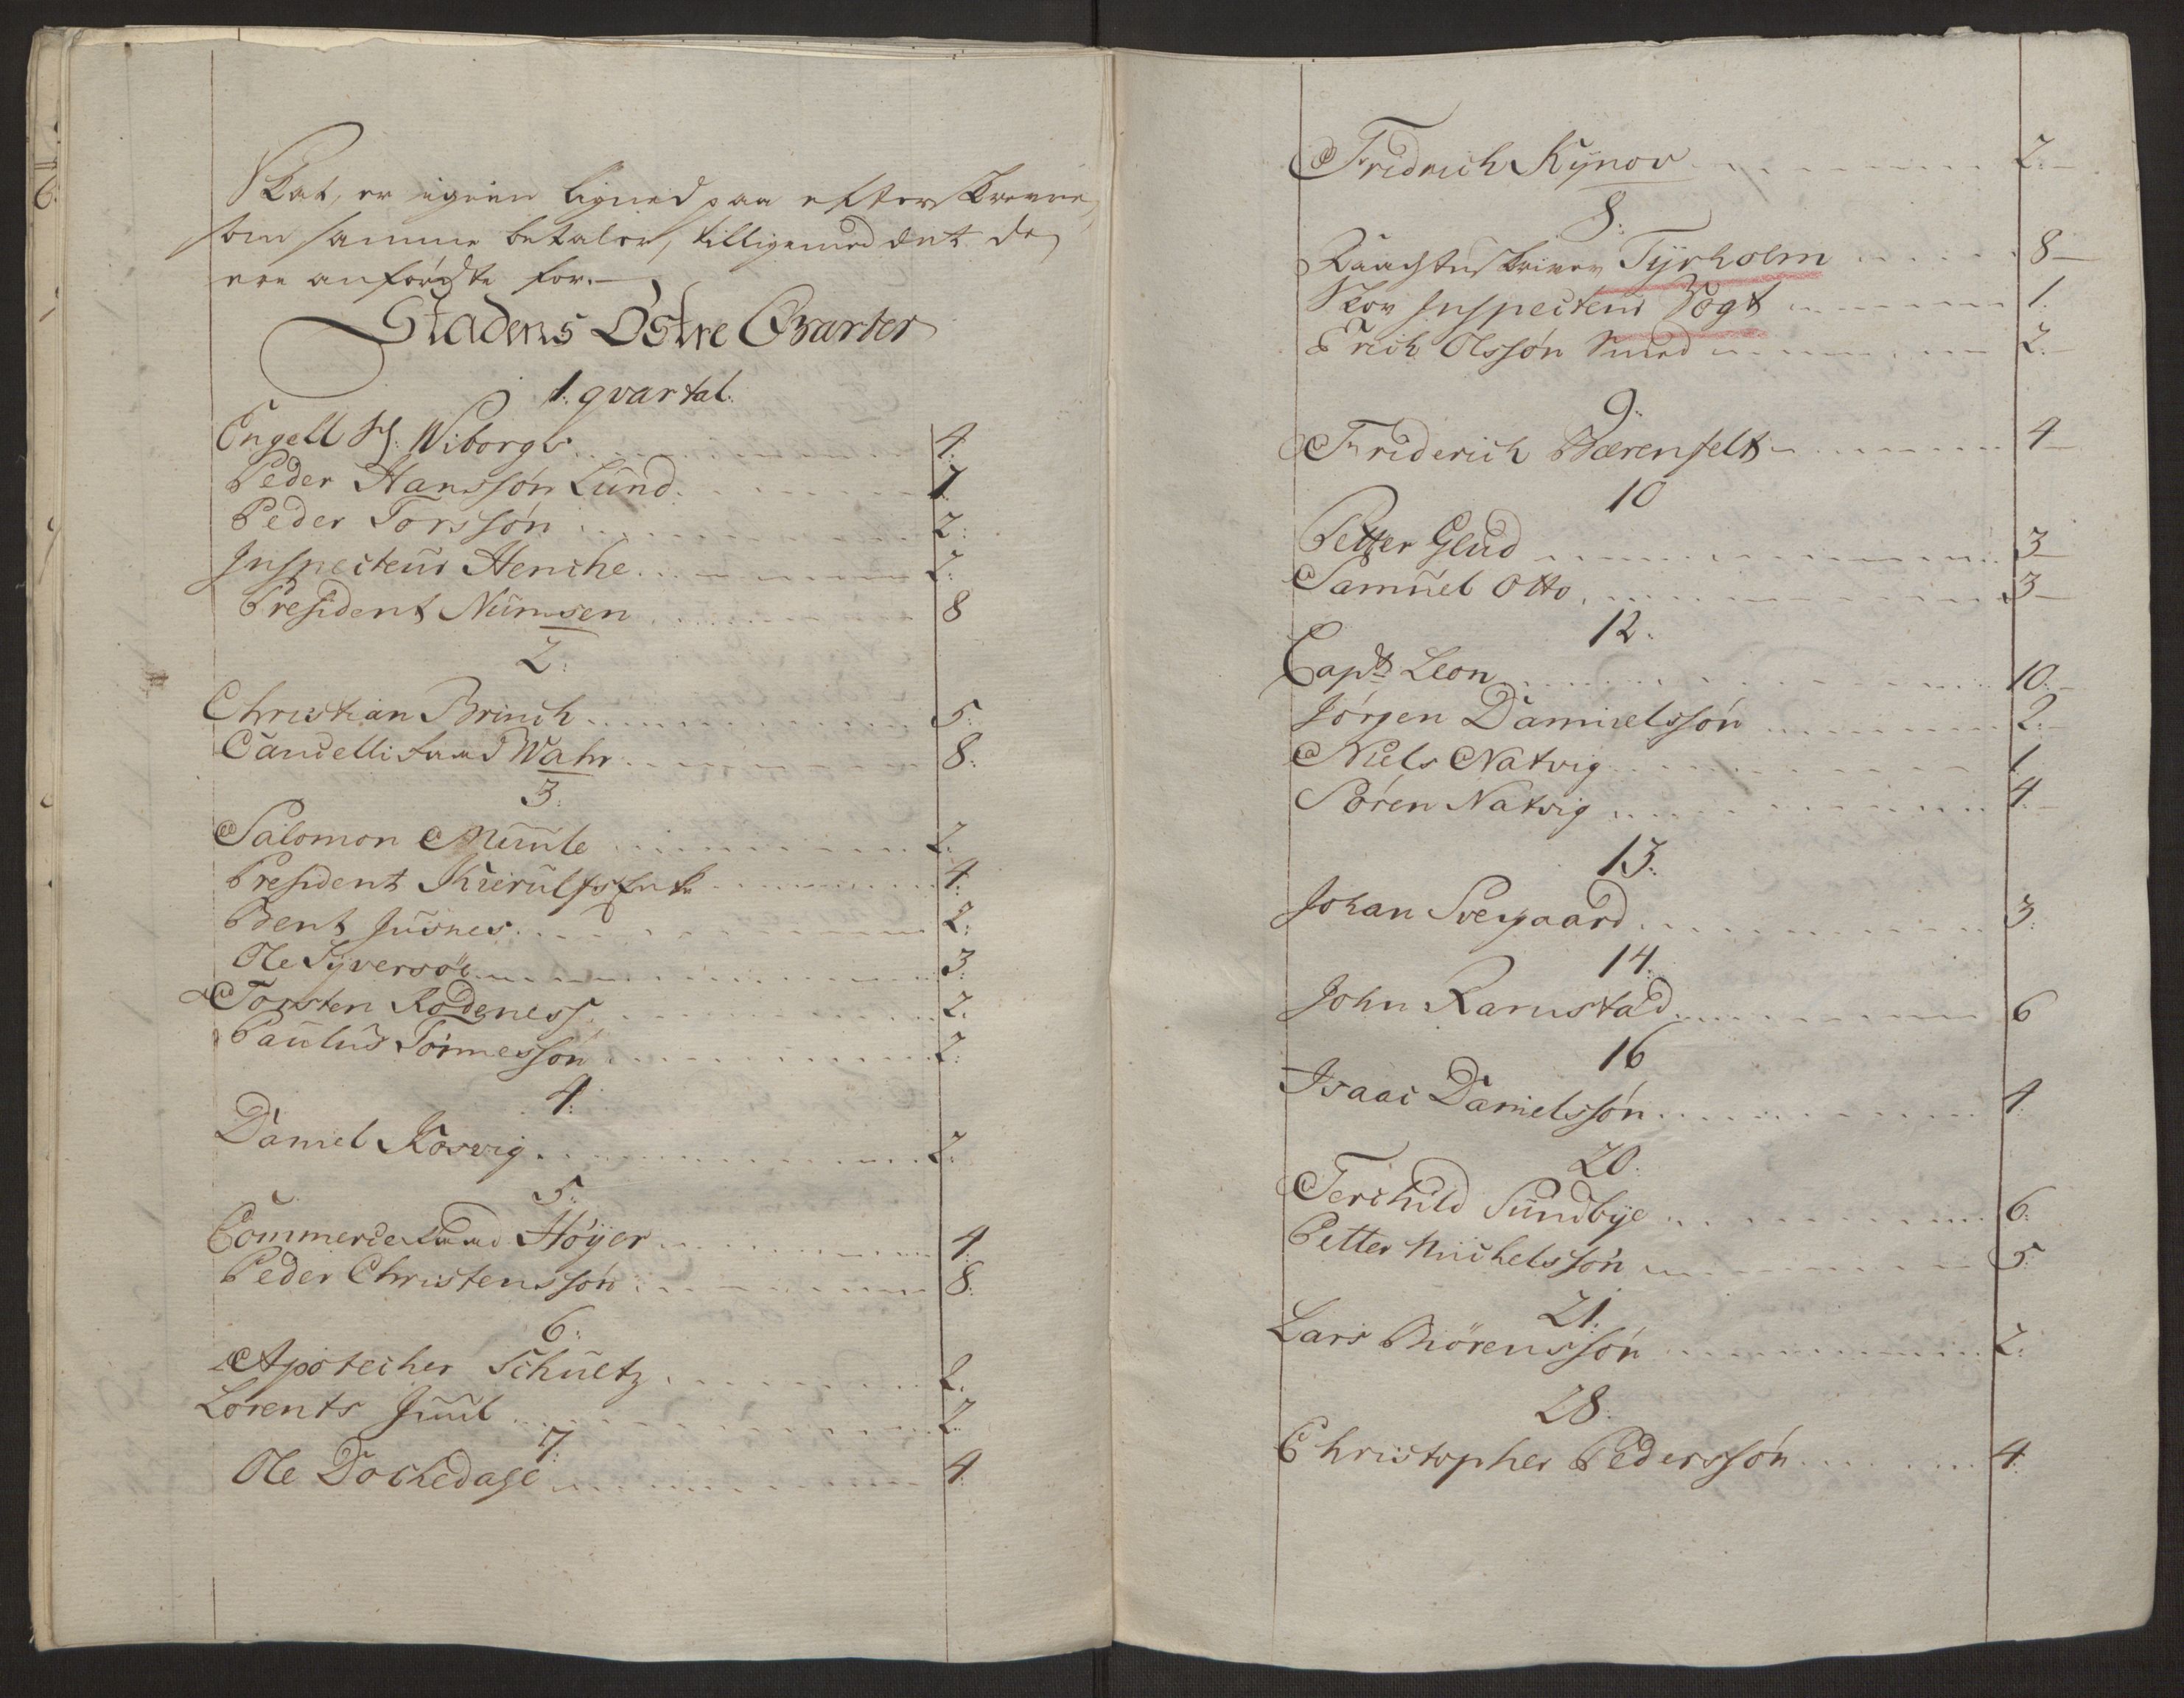 Skat, er igien ligned paa efterskrevne,
som samme betaler, tilligemed det de
ere anførdte for.
Stadens Östre Qvarter
1. qvartal.
Engell H. Wiborgs 4:
Peder Hanssøn Lund 1
Peder Torssøn 2:
Inspecteur Henche 2:
President Numsen 8
2:
Christian Brinch 5:
Cancelliraad Wahr 8:
3:
Salomon Muule 2.
President Kierulfs Enke 4:
Bent Jusnes 2:
Ole Syversøe 3:
Torsten Rodeness 2.
Paulus Tormessøn 2:
4:
Daniel Kosvig 2:
5:
Commerceraad Høyer 4:
Peder Christenssøn 8:
6:
Apotecher Schultz 2.
Lorents Juul 2.
7:
Ole Dockedage 4.
Fridrich Kynov 2.
8:
Tyrholm 8
Skov Inspecteur Vogt 1.
Erich Olssøn Smed 2.
9:
Friderich Bærenfelt 4
10
Petter Glud 3
Samuel Otto 3
12.
Capt Leon 10.
Jørgen Danielssøn 2.
Niels Natvig 1
Søren Natvig 4.
13:
Johan Svegaard 3:
14:
John Ramstad 6
16
Isaac Danielssøn 4.
20.
Terchild Sundbye 6:
Petter Michelssøn 5:
21:
Lars Biörenssøn 2:
28.
Christopher Pederssøn 4: